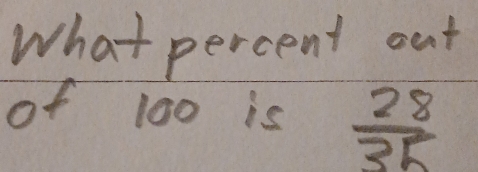 What percent out
of 100 is 28/35